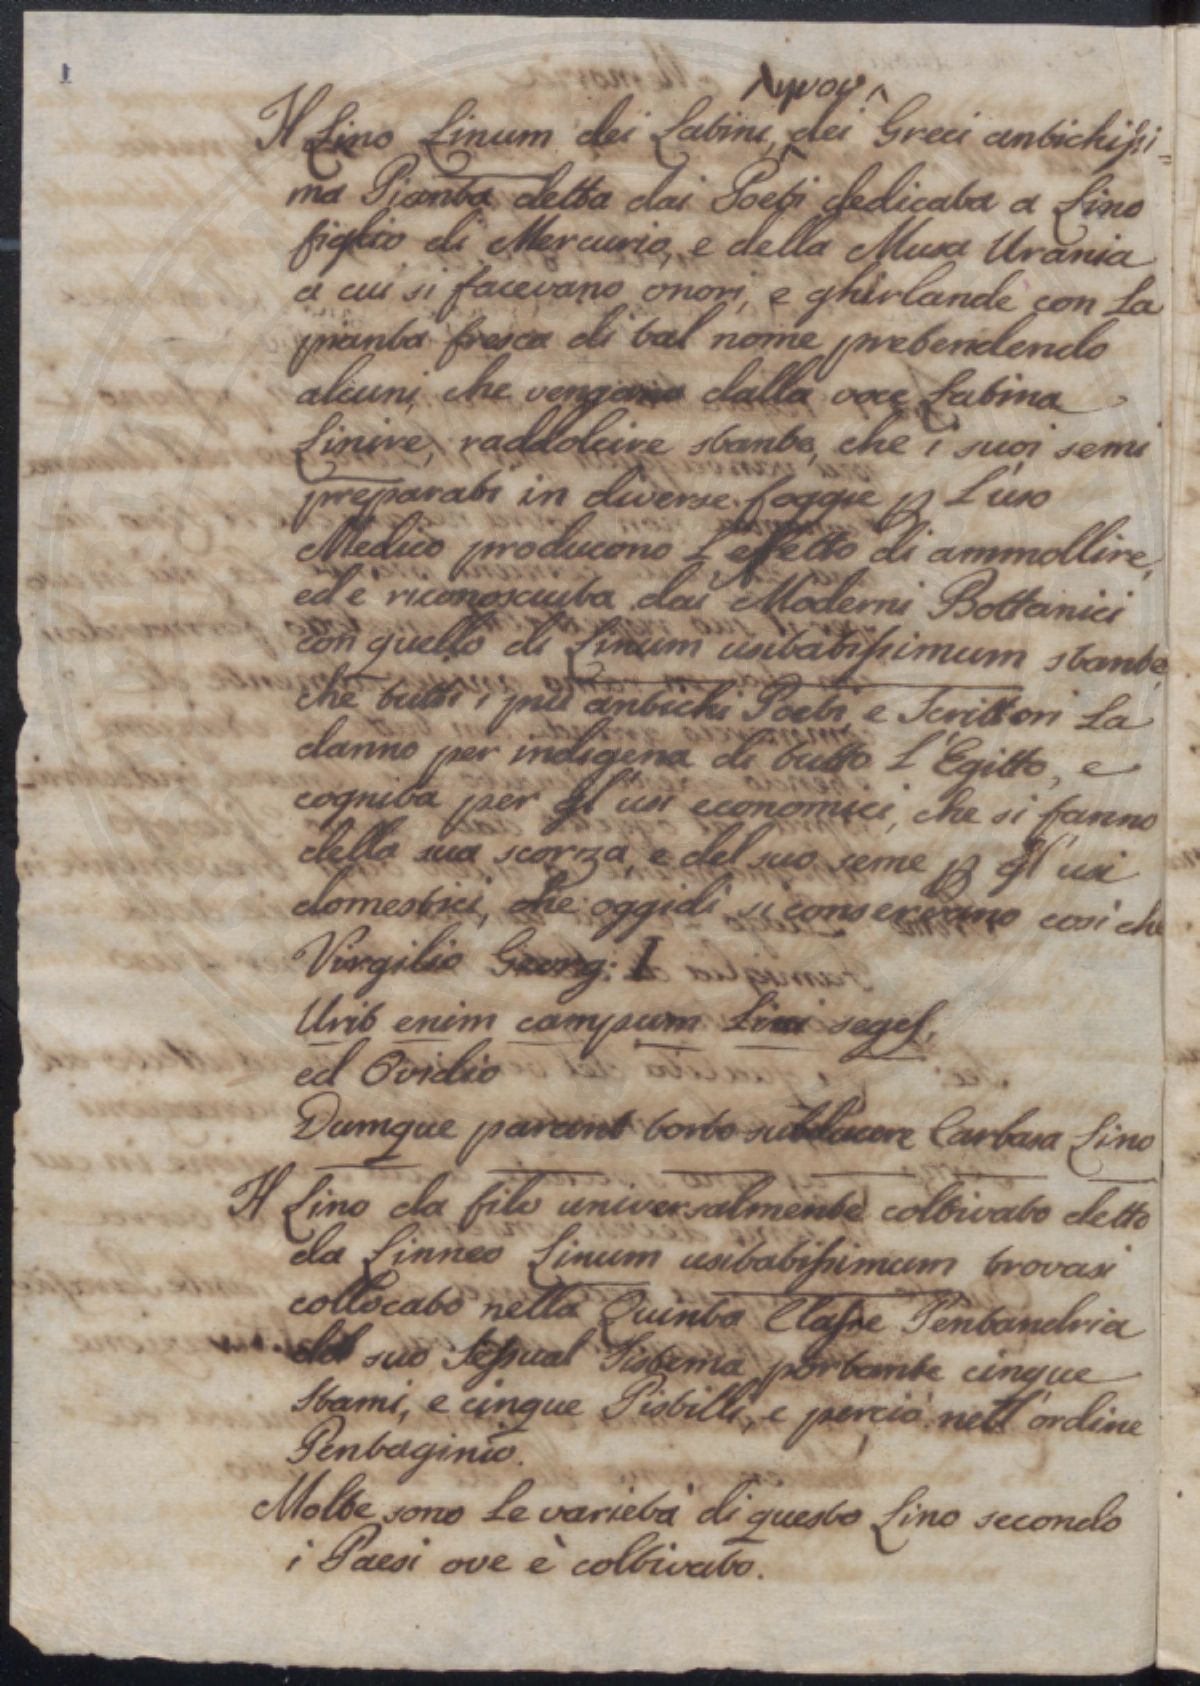 1
Λίνον
Il Lino Linum dei Latini, dei Greci antichissi=
ma Pianta detta dai Poeti dedicata a Lino
figlio di Mercurio, e della Musa Urania
a cui si facevano onori, e ghirlande con La
pianta fresca di tal nome pretendendo
alcuni, che vengano dalla voce Latina
Linire, raddolcire stante, che i suoi semi
preparati in diverse foggie p L'uso
Medico producono L'effetto di ammollire,
ed e riconosciuta dai Moderni Bottanici
con quello di Linum usitatissimum stante
che tutti i più antichi Poeti, e Scrittori La
danno per indigena di tutto L'Egitto, e
cognita per gl'usi economici, che si fanno
della sua scorza, e del suo seme p gl'usi
domestici, che oggidi si conservano così che
Virgilio Georg: I
Urit enim campum Lini seges,
ed Ovidio
Dumque parant torto subducere Carbasa Lino
Il Lino da filo universalmente coltivato detto
da Linneo Linum usitatissimum trovasi
collocato nella Quinta Classe Pentandria
del suo Sessual Sistema portante cinque
Stami, e cinque Pistilli, e perciò nell'ordine
Pentaginio.
Molte sono Le varietà di questo Lino secondo
i Paesi ove è coltivato.